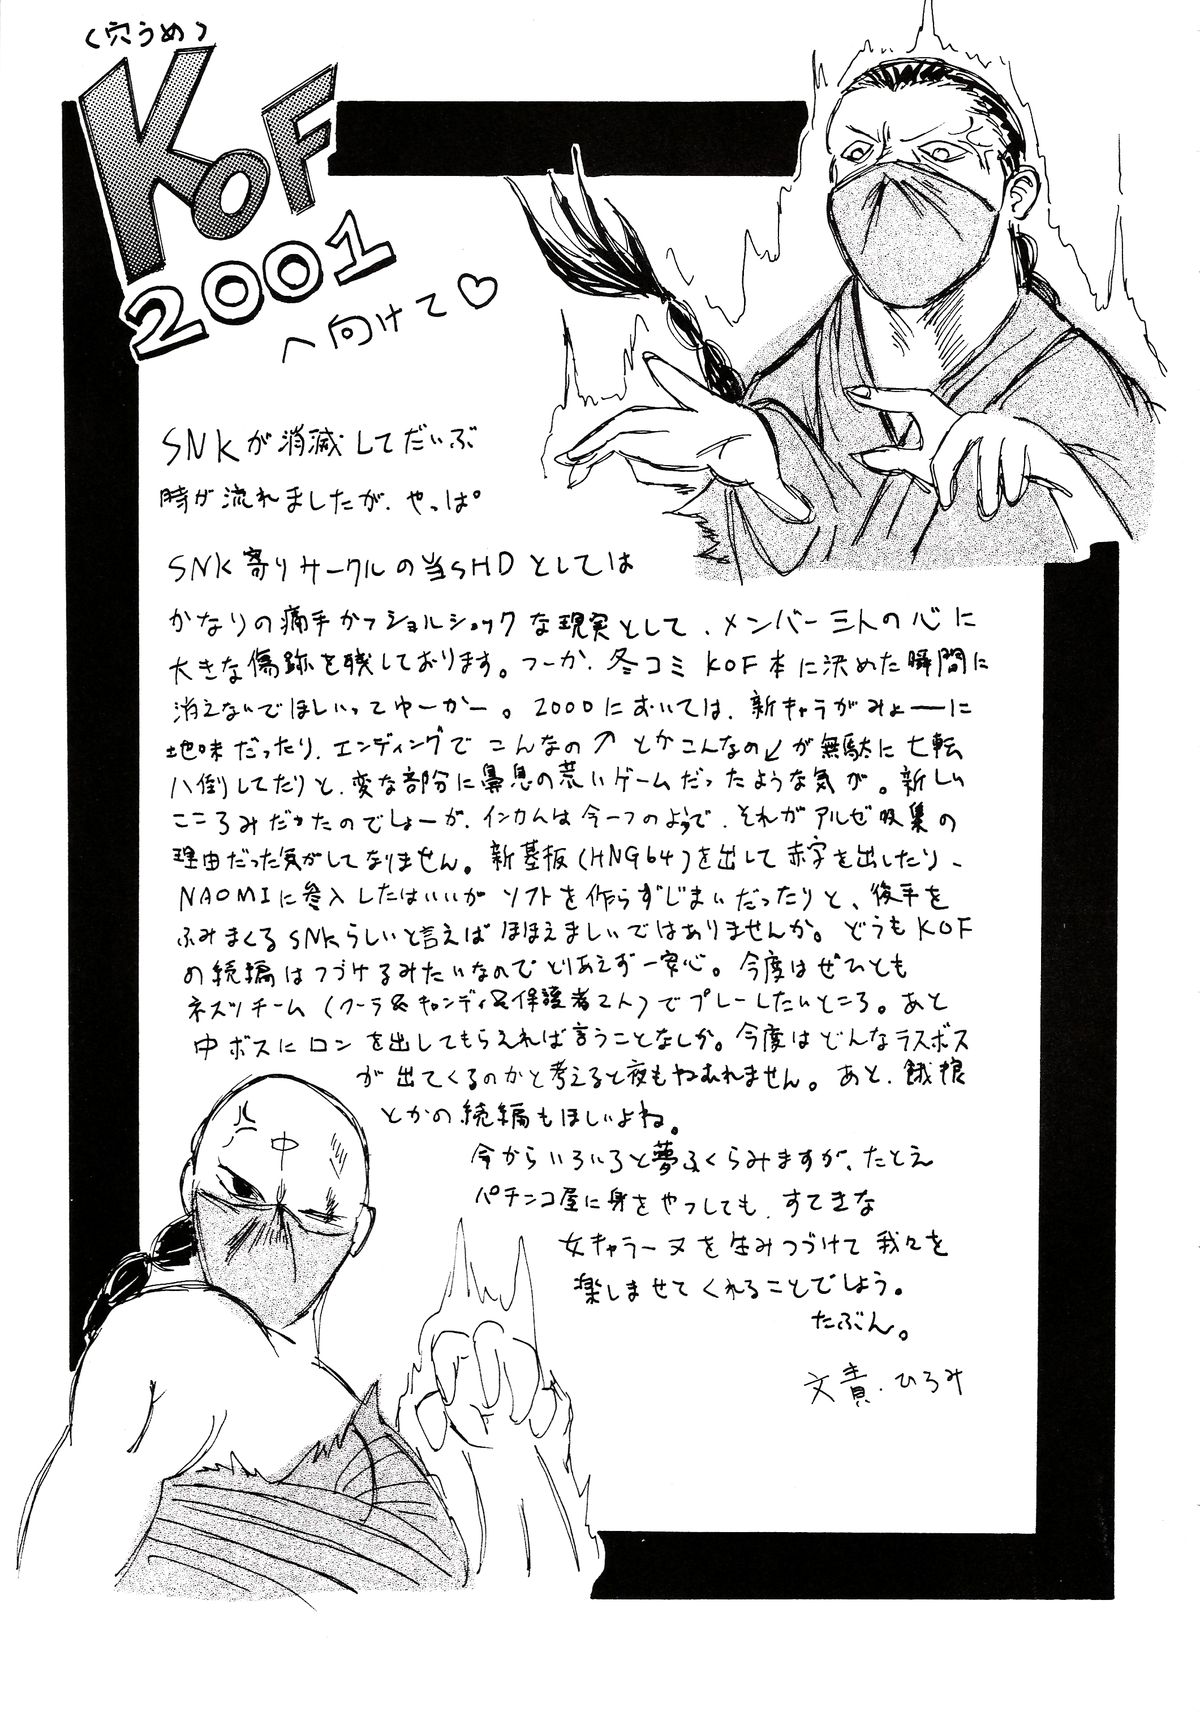 (穴うめ)
KOF
2001
へ向けて♡
SNKが消滅してだいぶ
時が流れましたが、やっぱ
SNK寄りサークルの当SHDとしては
かなりの痛手かつショルショックな現実として、メンバー三人の心に
大きな傷跡を残しております。つーか、冬コミKOF本に決めた瞬間に
消えないでほしいってゆーかー。2000においては、新キャラがみょーーに
地味だったり、エンディングでこんなの↗とかこんなの↙が無駄に七転
八倒してたりと、変な部分に鼻息の荒いゲームだったような気が。新しい
こころみだったのでしょーが、インカムは今一つのようで、それがアルゼ吸集の
理由だった気がしてなりません。新基板(HNG64)を出して赤字を出したり、
NAOMIに参入したはいいがソフトを作らずじまいだったりと、後手を
ふみまくるSNKらしいと言えばほほえましいではありませんか。どうもKOF
の続編はつづけるみたいなのでとりあえず一安心。今度はぜひとも
ネスツチーム(クーラ&キャンディ&保護者2人)でプレーしたいところ。あと
中ボスにロンを出してもらえれば言うことなしか。今度はどんなラスボス
が出てくるのかと考えると夜もねむれません。あと、餓狼
とかの続編もほしいよね。
今からいろいろと夢ふくらみますが、たとえ
パチンコ屋に身をやつしても、すてきな
女キャラーヌを生みつづけて我々を
楽しませてくれることでしよう。
たぶん。
文責・ひろみ
中